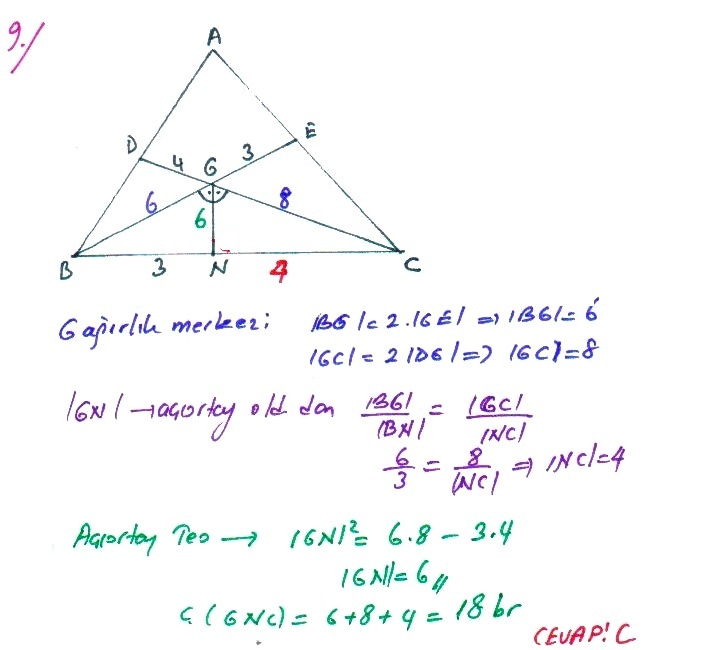 9./
A
D
E
4 G 3
6
8
6
B 3 N 4 C
G ağırlık merkezi: |BG|=2.|GE| => |BG|=6
|GC|=2|DG| => |GC|=8
|GN| → açıortay old. dan |BG|/|BN| = |GC|/|NC|
6/3 = 8/|NC| => |NC|=4
Açıortay Teo → |GN|²= 6.8 - 3.4
|GN|=6//
Ç(GNC)= 6+8+4=18 br
CEVAP: C